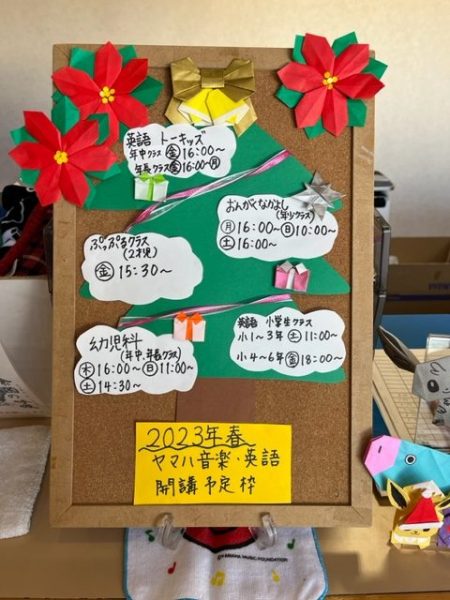 英語 トーキッズ
年中クラス 金 16:00〜
年長クラス 金 16:00〜 月
おんがくなかよし
(年少クラス)
月 16:00〜 日 10:00〜
土 16:00〜
ぷっぷるクラス
(2才児)
金 15:30〜
英語 小学生クラス
小1〜3年 土 11:00〜
小4〜6年 金 18:00〜
幼児科
(年中、年長クラス)
木 16:00〜 日 11:00〜
土 14:30〜
2023年春
ヤマハ音楽・英語
開講予定枠
YAMAHA MUSIC FOUNDATION